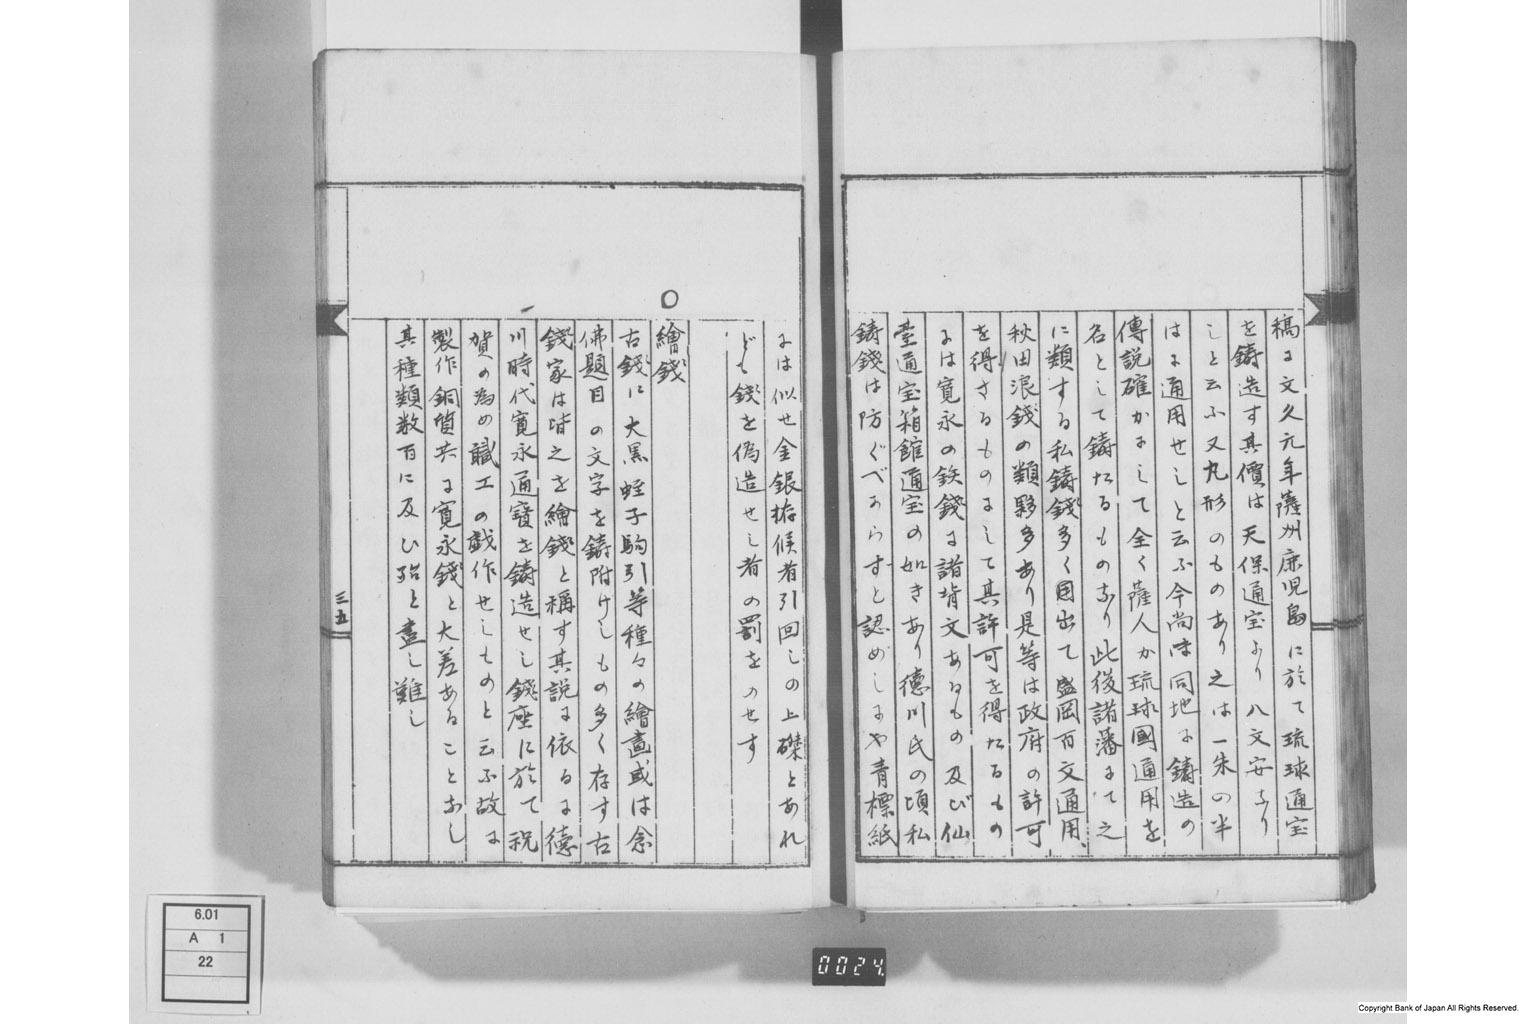 稿ニ文久元年薩州鹿児島に於て琉球通宝
を鋳造す其價は天保通宝より八文安なり
しと云ふ又丸形のものあり之は一朱の半
はニ通用せしと云ふ今尚ほ同地ニ鋳造の
傳説確かにして全く薩人か琉球國通用を
名として鋳たるものなり此後諸藩にて之
に類する私鋳錢多く目出て盛岡百文通用、
秋田浪錢の類夥多あり是等は政府の許可
を得さるものにして其許可を得たるもの
には寛永の鉄錢に諸背文あるもの及び仙
臺通宝箱館通宝の如きあり德川氏の頃私
鋳錢は防ぐべからずと認めしにや青標紙
には似せ金銀拵候者引回しの上磔とあれ
ども錢を偽造せし者の罰をのせす
○
繪錢
古錢に大黒蛭子駒引等種々の繪畫或は念
佛題目の文字を鋳附けしもの多く存す古
錢家は皆之を繪錢と稱す其説に依るに德
川時代寛永通寳を鋳造せし錢座に於て祝
賀の為め職工の戯作せしものと云ふ故に
製作銅質共に寛永錢と大差あることなし
其種類数百に及ひ殆と盡し難し
三五
6.01
A 1
22
0024
Copyright Bank of Japan All Rights Reserved.